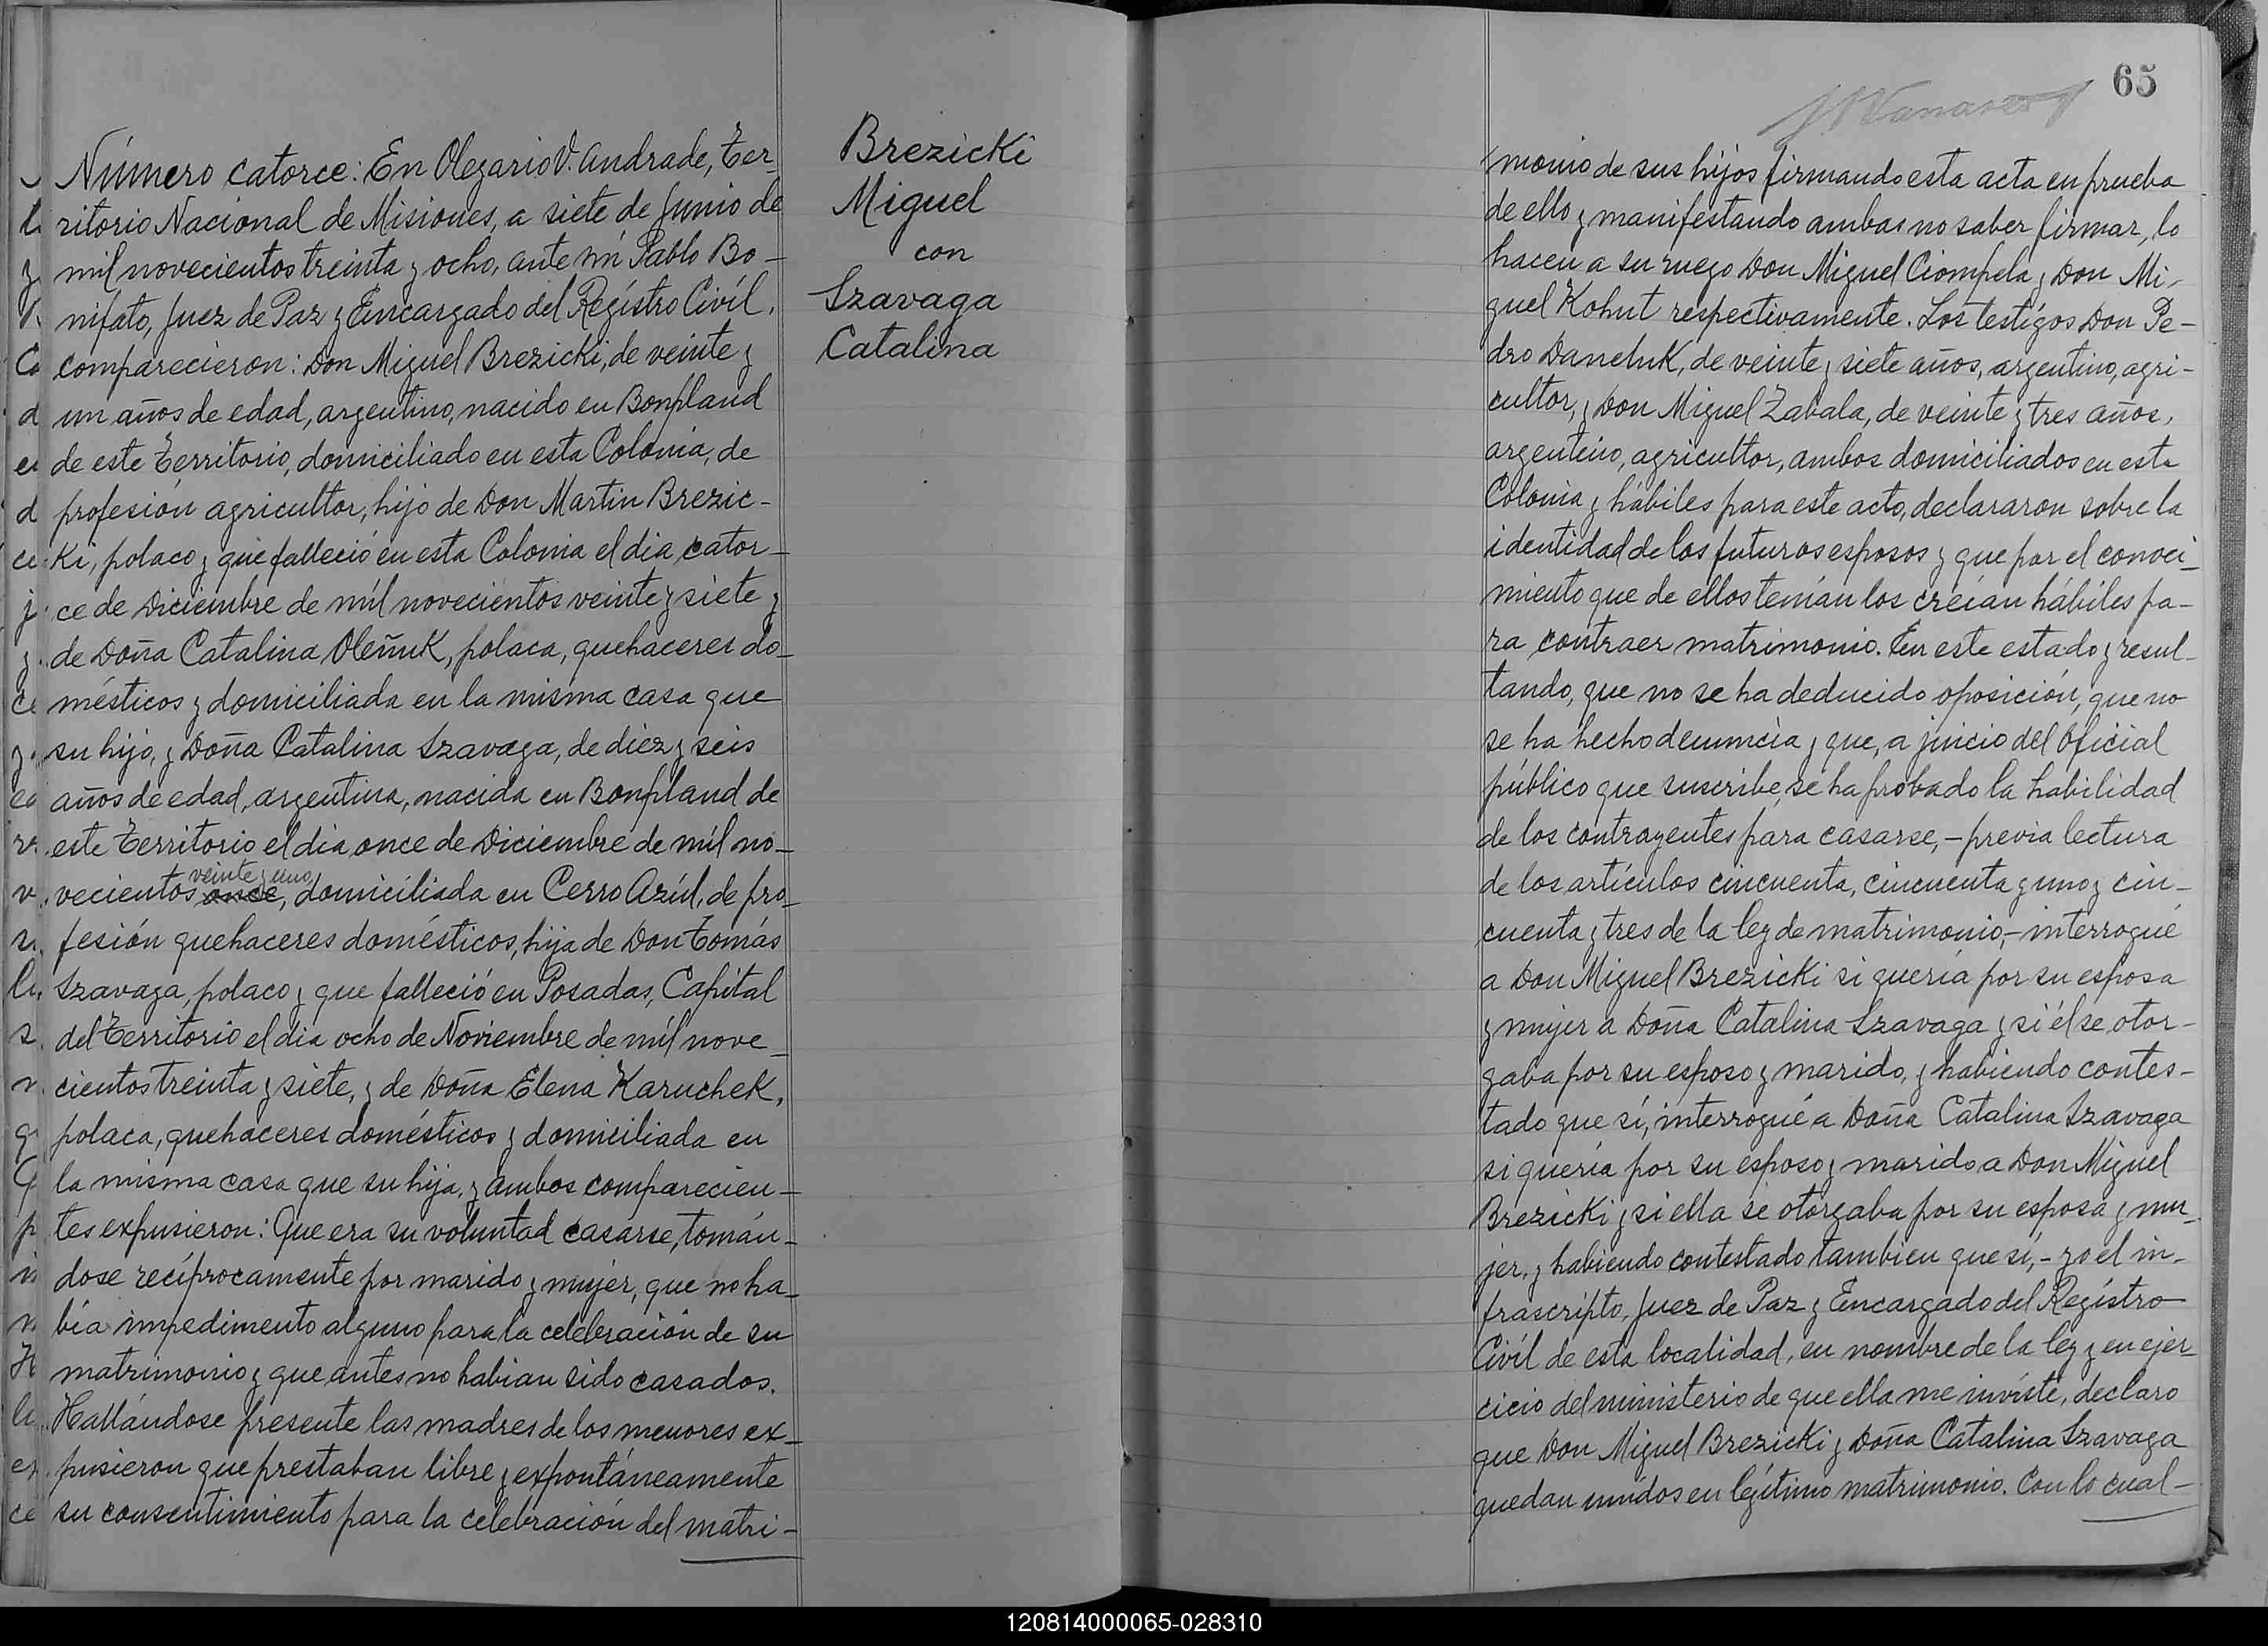 Número catorce: En Olegario V. Andrade, Ter-
ritorio Nacional de Misiones, a siete de Junio de
mil novecientos treinta y ocho, ante mí Pablo Bo-
nifato, Juez de Paz y Encargado del Registro Civíl,
comparecieron: Don Miguel Brezicki, de veinte y
un años de edad, argentino, nacido en Bonpland
de este Territorio, domiciliado en esta Colonia, de
profesión agricultor, hijo de Don Martin Brezic-
ki, polaco y que falleció en esta Colonia el dia cator-
ce de Diciembre de mil novecientos veinte y siete y
de Doña Catalina Oleñuk, polaca, quehaceres do-
mésticos y domiciliada en la misma casa que
su hijo, y Doña Catalina Szavaga, de diez y seis
años de edad, argentina, nacida en Bonpland de
este Territorio el dia once de Diciembre de mil no-
veinte y uno
vecientos once, domiciliada en Cerro Azúl, de pro-
fesión quehaceres domésticos, hija de Don Tomás
Szavaga, polaco y que falleció en Posadas, Capital
del Territorio el dia ocho de Noviembre de mil nove-
cientos treinta y siete, y de Doña Elena Karuchek,
polaca, quehaceres domésticos y domiciliada en
la misma casa que su hija, y ambos comparecien-
tes expusieron: Que era su voluntad casarse, tomán-
dose recíprocamente por marido y mujer, que no ha-
bía impedimento alguno para la celebración de su
matrimonio y que antes no habian sido casados.
Hallándose presente las madres de los menores ex-
pusieron que prestaban libre y expontáneamente
su consentimiento para la celebración del matri-
Brezicki
Miguel
con
Szavaga
Catalina
65
monio de sus hijos firmando esta acta en prueba
de ello y manifestando ambas no saber firmar, lo
hacen a su ruego Don Miguel Ciompela y Don Mi-
guel Kohut respectivamente. Los testigos Don Pe-
dro Daneluk, de veinte y siete años, argentino, agri-
cultor, y Don Miguel Zabala, de veinte y tres años,
argentino, agricultor, ambos domiciliados en esta
Colonia y hábiles para este acto, declararon sobre la
identidad de los futuros esposos y que por el conoci-
miento que de ellos tenían los creían hábiles pa-
ra contraer matrimonio. En este estado y resul-
tando, que no se ha deducido oposición, que no
se ha hecho denuncia y que, a juicio del Oficial
público que suscribe, se ha probado la habilidad
de los contrayentes para casarse,- previa lectura
de los artículos cincuenta, cincuenta y uno y cin-
cuenta y tres de la ley de matrimonio,- interrogué
a Don Miguel Brezicki si quería por su esposa
y mujer a Doña Catalina Szavaga y si él se otor-
gaba por su esposo y marido, y habiendo contes-
tado que sí, interrogué a Doña Catalina Szavaga
si quería por su esposo y marido a Don Miguel
Brezicki y si ella se otorgaba por su esposa y mu-
jer, y habiendo contestado tambien que sí,- yo el in-
frascripto, Juez de Paz y Encargado del Registro
Civíl de esta localidad, en nombre de la ley y en ejer-
cicio del ministerio de que ella me inviste, declaro
que Don Miguel Brezicki y Doña Catalina Szavaga
quedan unídos en legítimo matrimonio. Con lo cual-
120814000065-028310